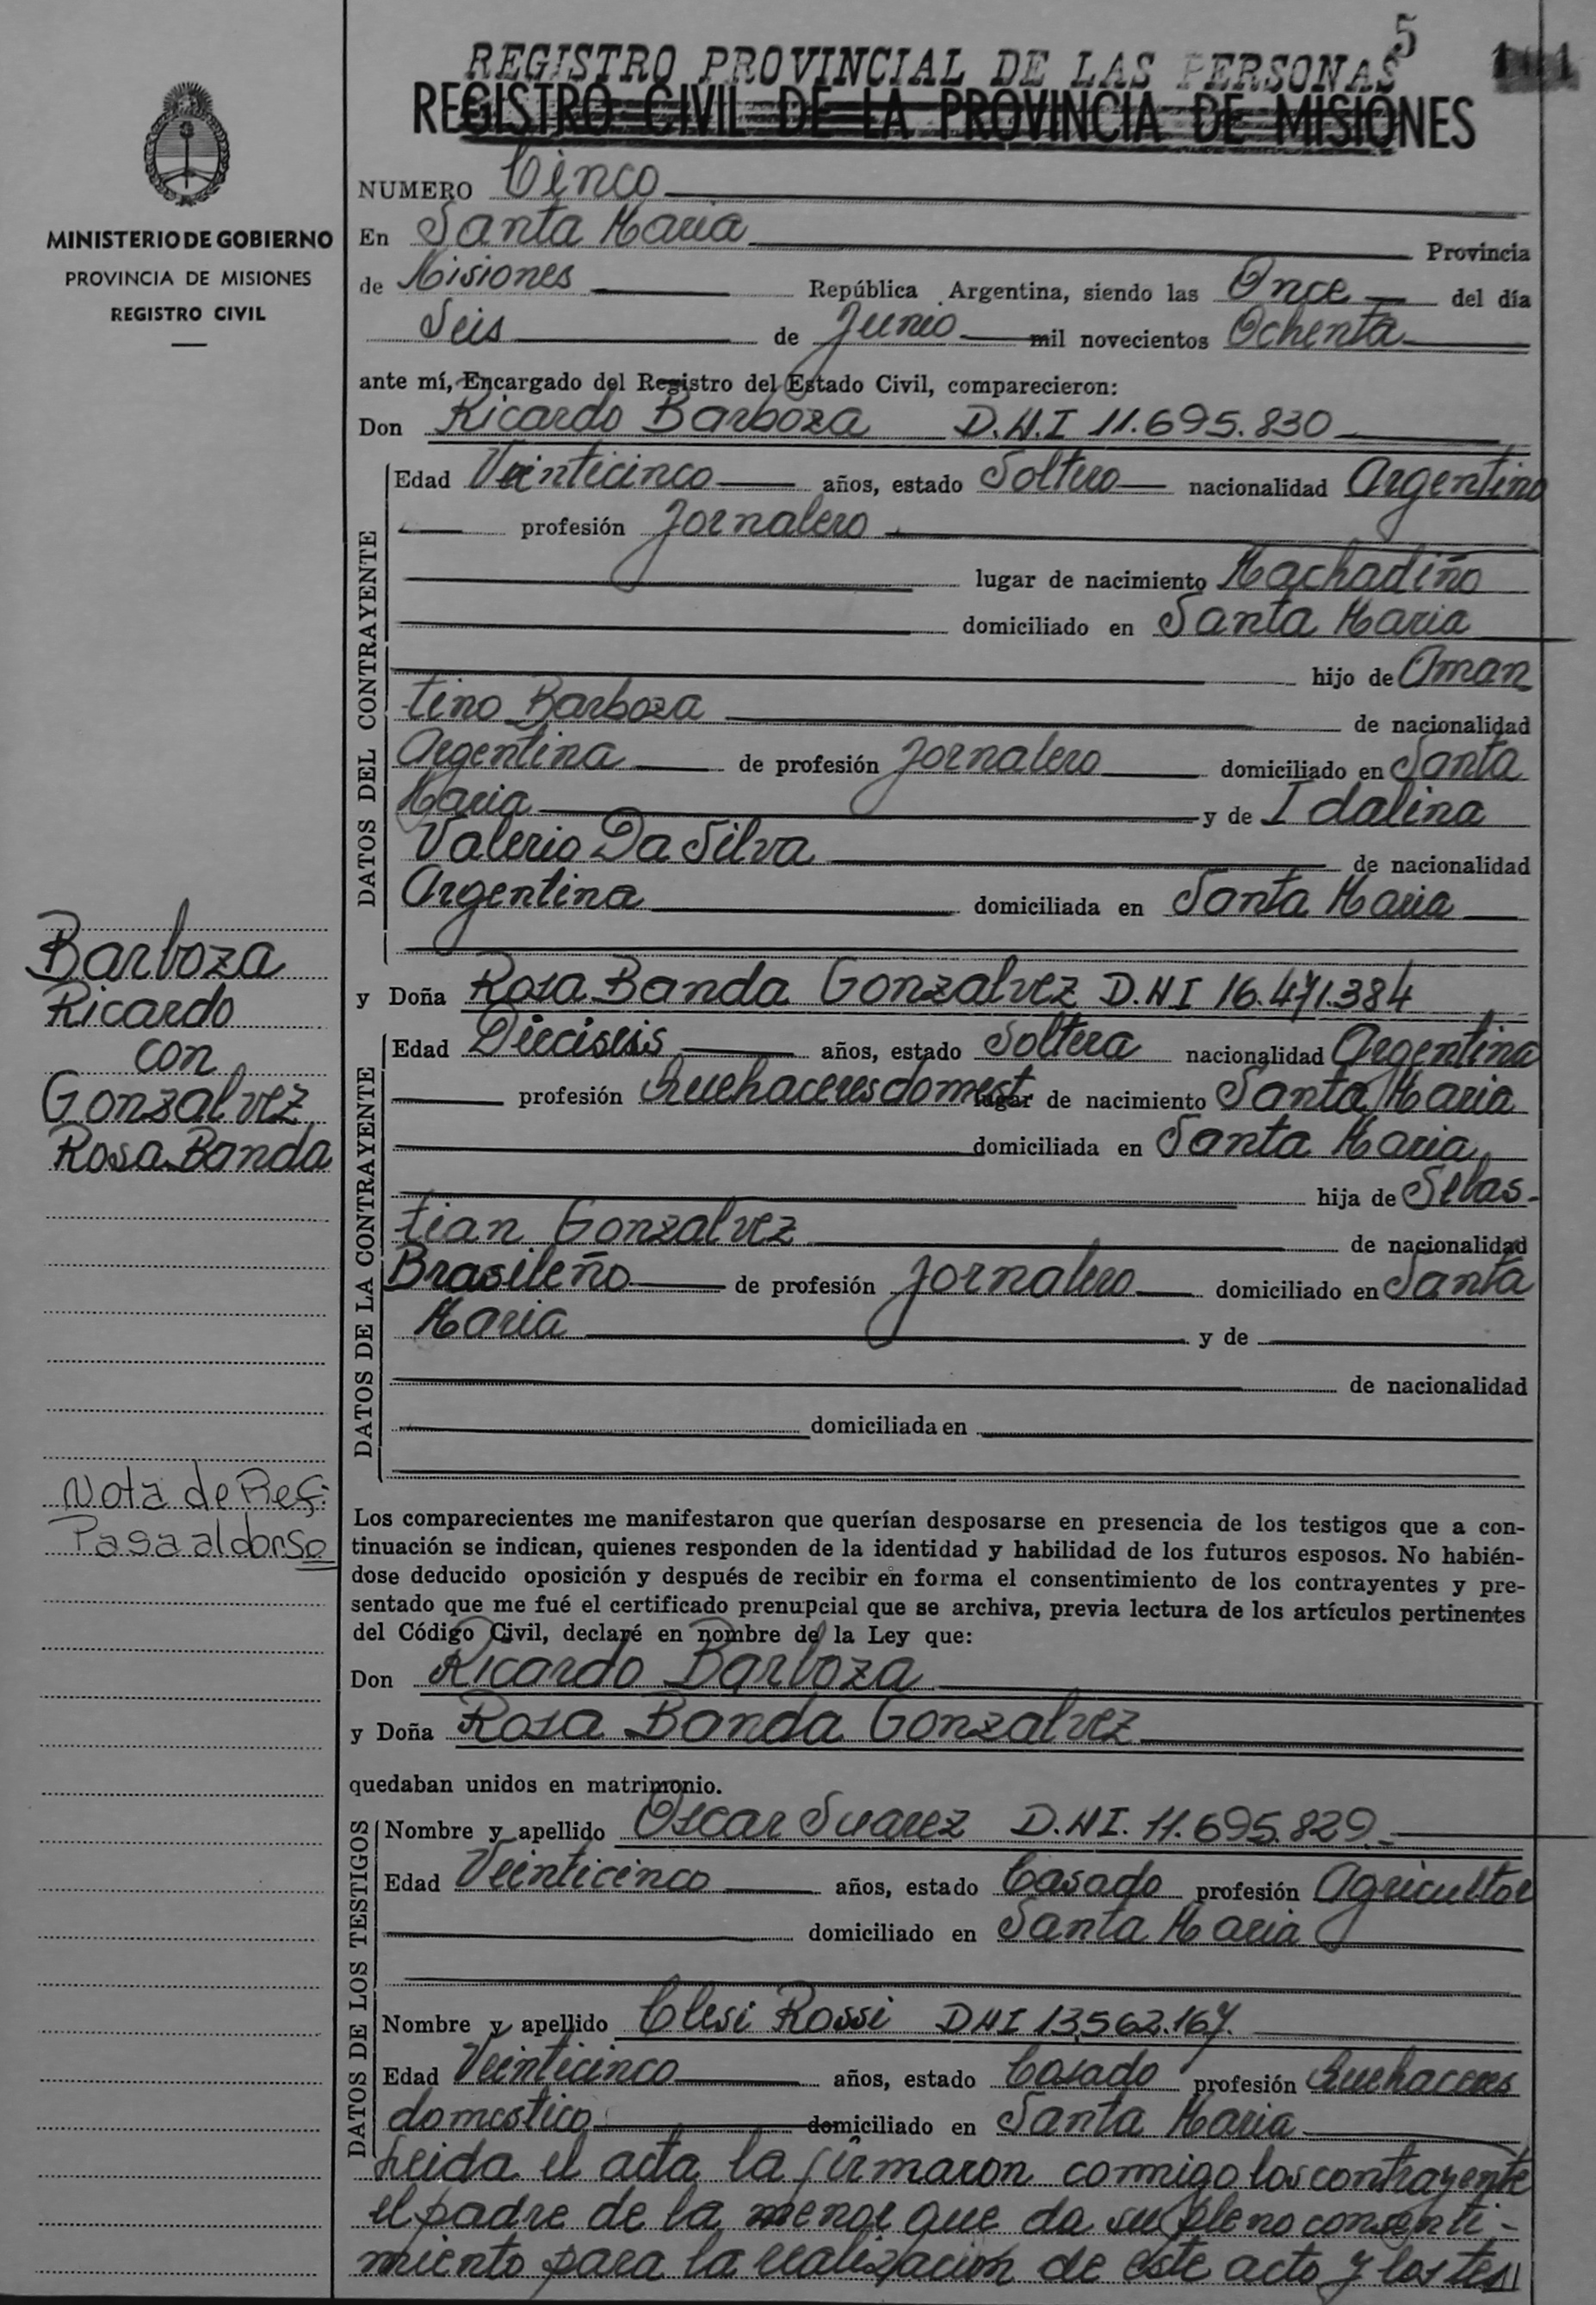 5
REGISTRO PROVINCIAL DE LAS PERSONAS
REGISTRO CIVIL DE LA PROVINCIA DE MISIONES
MINISTERIO DE GOBIERNO
PROVINCIA DE MISIONES
REGISTRO CIVIL
NUMERO Cinco
En Santa Maria Provincia
de Misiones República Argentina, siendo las Once del día
Seis de Junio mil novecientos Ochenta
ante mí, Encargado del Registro del Estado Civil, comparecieron:
Don Ricardo Barboza D.N.I 11.695.830
DATOS DEL CONTRAYENTE
Edad Veinticinco años, estado Soltero nacionalidad Argentino
profesión Jornalero
lugar de nacimiento Machadiño
domiciliado en Santa Maria
hijo de Aman
tino Barboza de nacionalidad
Argentina de profesión Jornalero domiciliado en Santa
Maria y de Idalina
Valerio Da Silva de nacionalidad
Argentina domiciliada en Santa Maria
Barboza
Ricardo
con
Gonzalvez
Rosa Banda
y Doña Rosa Banda Gonzalvez D.N.I 16.471.384
DATOS DE LA CONTRAYENTE
Edad Dieciseis años, estado Soltera nacionalidad Argentina
profesión Quehaceres domest. lugar de nacimiento Santa Maria
domiciliada en Santa Maria
hija de Sebas-
tian Gonzalvez de nacionalidad
Brasileño de profesión Jornalero domiciliado en Santa
Maria y de
de nacionalidad
domiciliada en
Nota de Ref:
Pasa al dorso
Los comparecientes me manifestaron que querían desposarse en presencia de los testigos que a con-
tinuación se indican, quienes responden de la identidad y habilidad de los futuros esposos. No habién-
dose deducido oposición y después de recibir en forma el consentimiento de los contrayentes y pre-
sentado que me fué el certificado prenupcial que se archiva, previa lectura de los artículos pertinentes
del Código Civil, declaré en nombre de la Ley que:
Don Ricardo Barboza
y Doña Rosa Banda Gonzalvez
quedaban unidos en matrimonio.
DATOS DE LOS TESTIGOS
Nombre y apellido Oscar Suarez D.N.I. 11.695.829.
Edad Veinticinco años, estado Casado profesión Agricultor
domiciliado en Santa Maria
Nombre y apellido Clesi Rossi DNI 13.562.167.
Edad Veinticinco años, estado Casado profesión Quehaceres
domestico domiciliado en Santa Maria
Leida el acta la firmaron conmigo los contrayente
el padre de la menor que da su pleno consenti-
miento para la realizacion de este acto y los tes